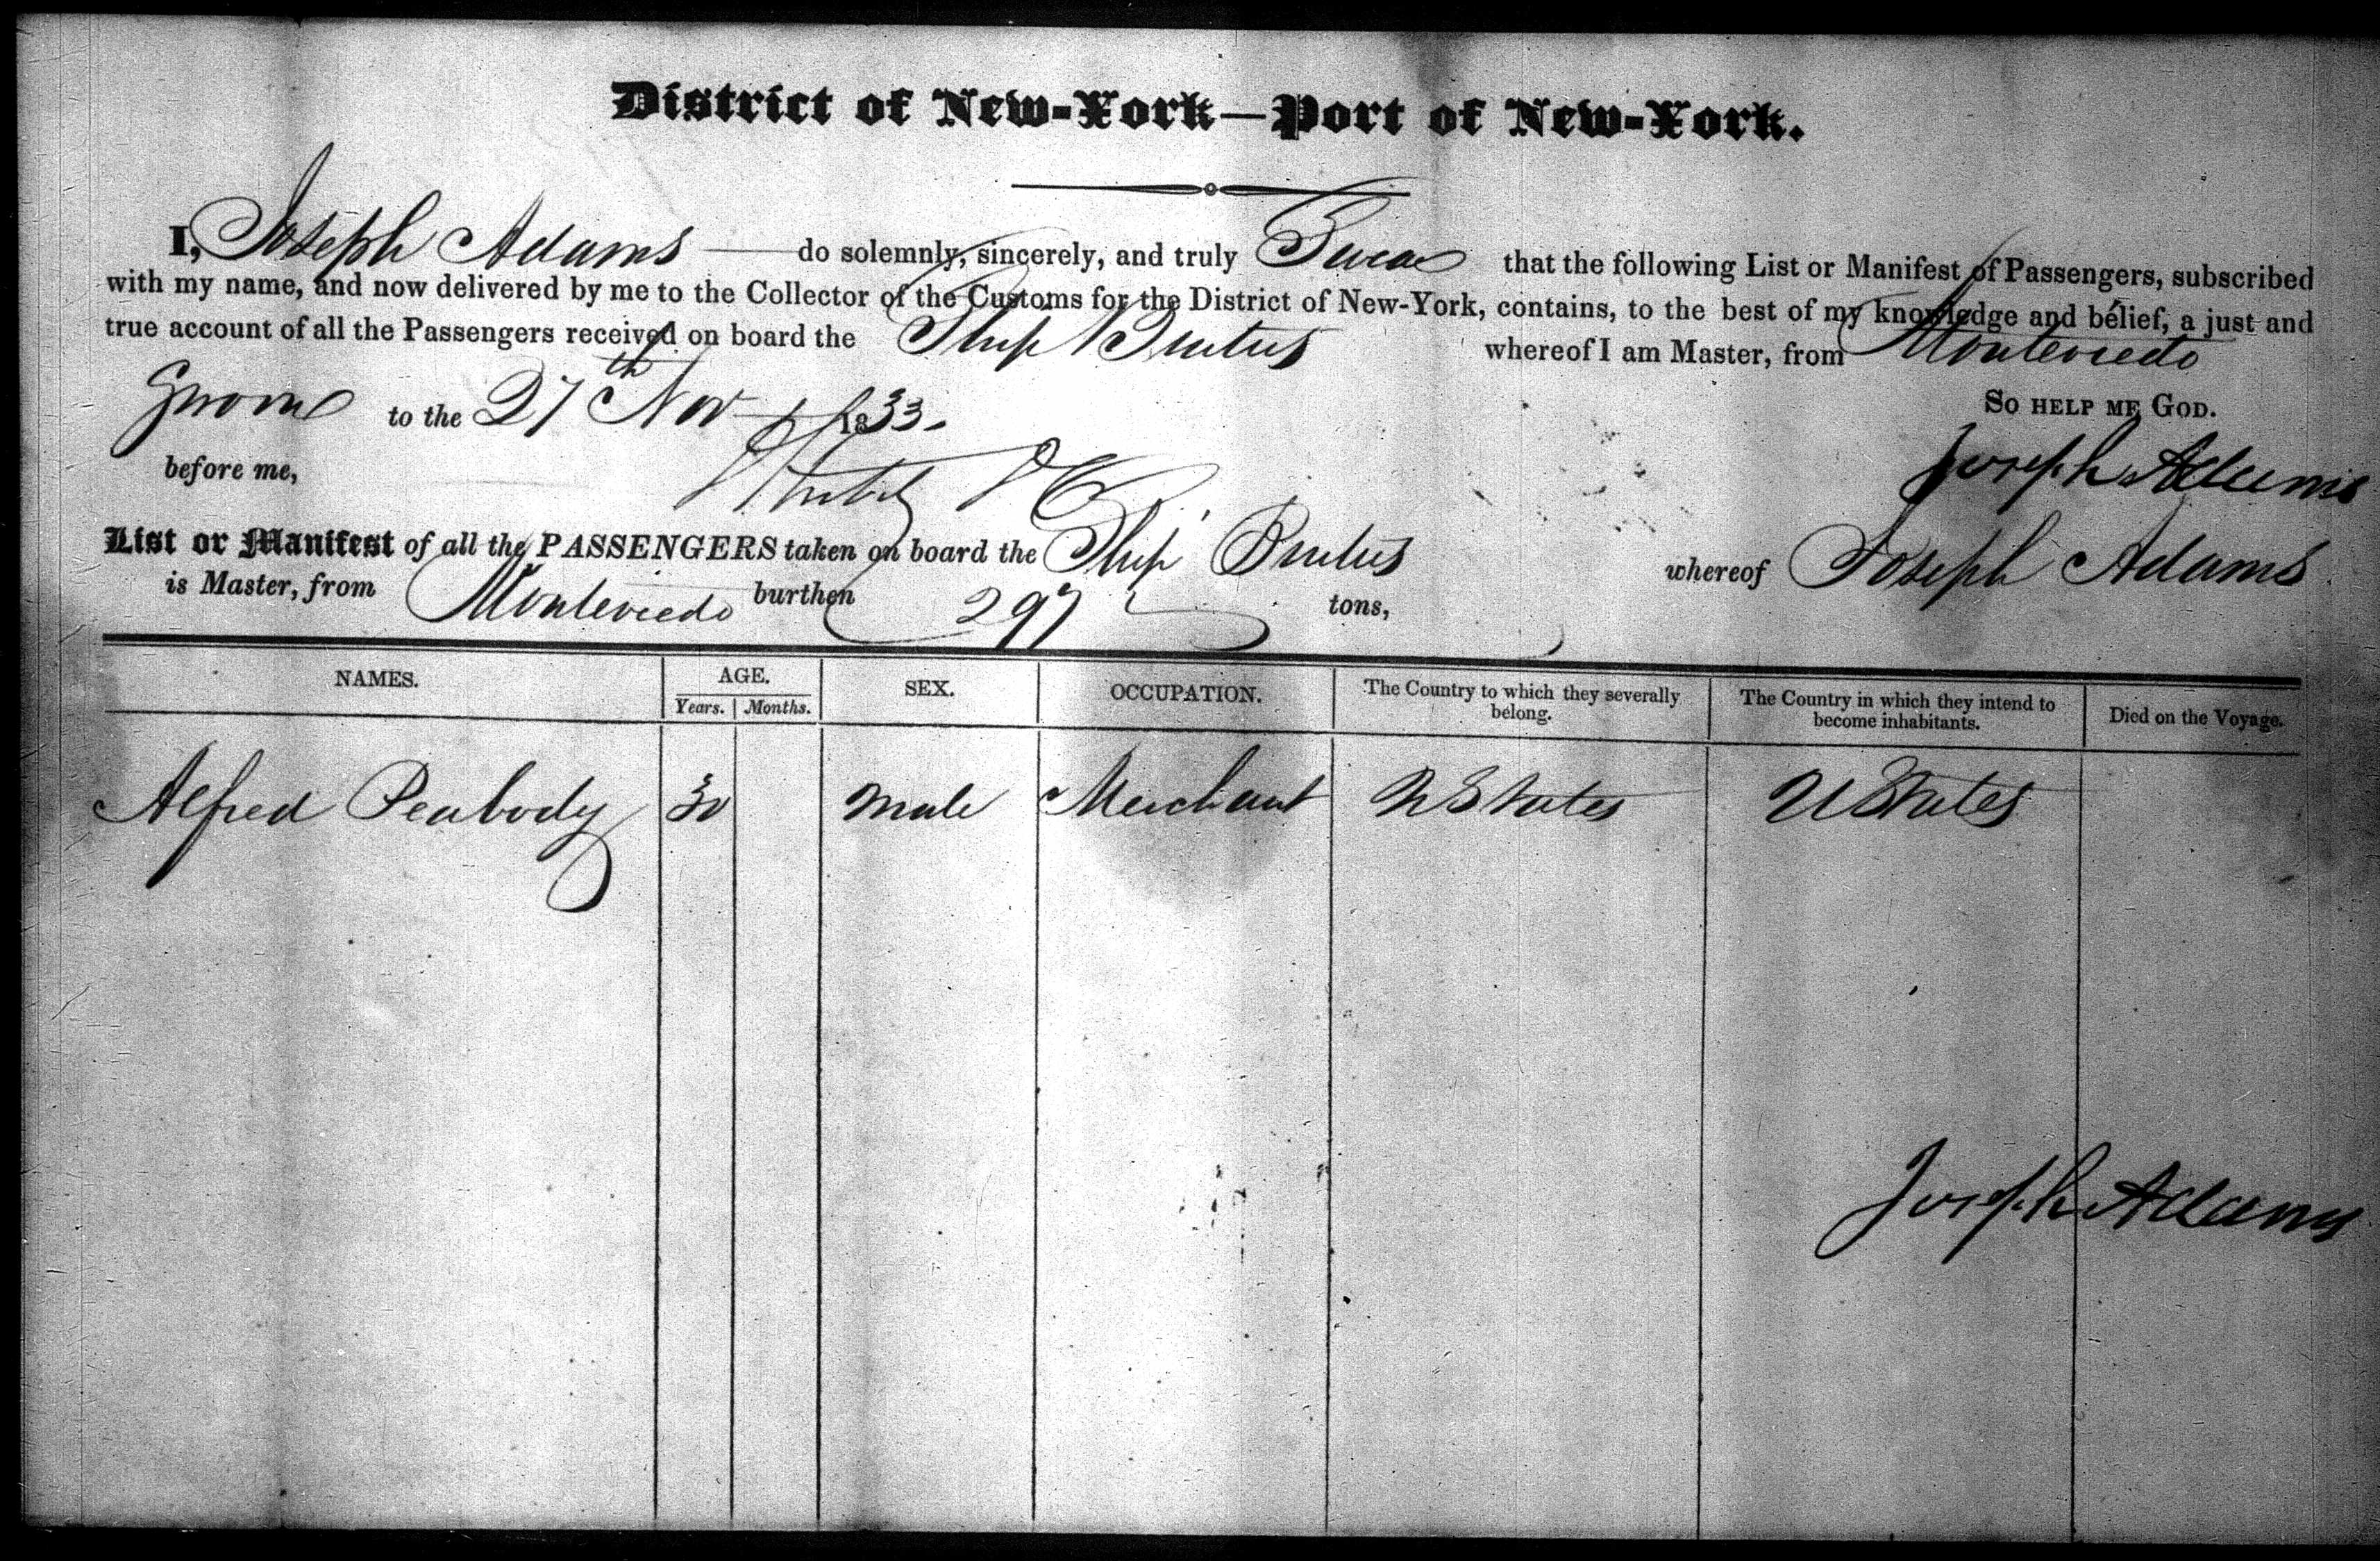 District of New-York—Port of New-York.
I, Joseph Adams do solemnly, sincerely, and truly Swear that the following List or Manifest of Passengers, subscribed
with my name, and now delivered by me to the Collector of the Customs for the District of New-York, contains, to the best of my knowledge and belief, a just and
true account of all the Passengers received on board the Ship Brutus whereof I am Master, from Monteviedo
Sworn to the 27th Nov 1833. So help me God.
before me, Joseph Adams
List or Manifest of all the PASSENGERS taken on board the Ship Brutus whereof Joseph Adams
is Master, from Monteviedo burthen 297 tons,
NAMES. AGE. SEX. OCCUPATION. The Country to which they severally belong. The Country in which they intend to become inhabitants. Died on the Voyage.
Years. Months.
Alfred Peabody 30 Male Merchant U States U States
Joseph Adams